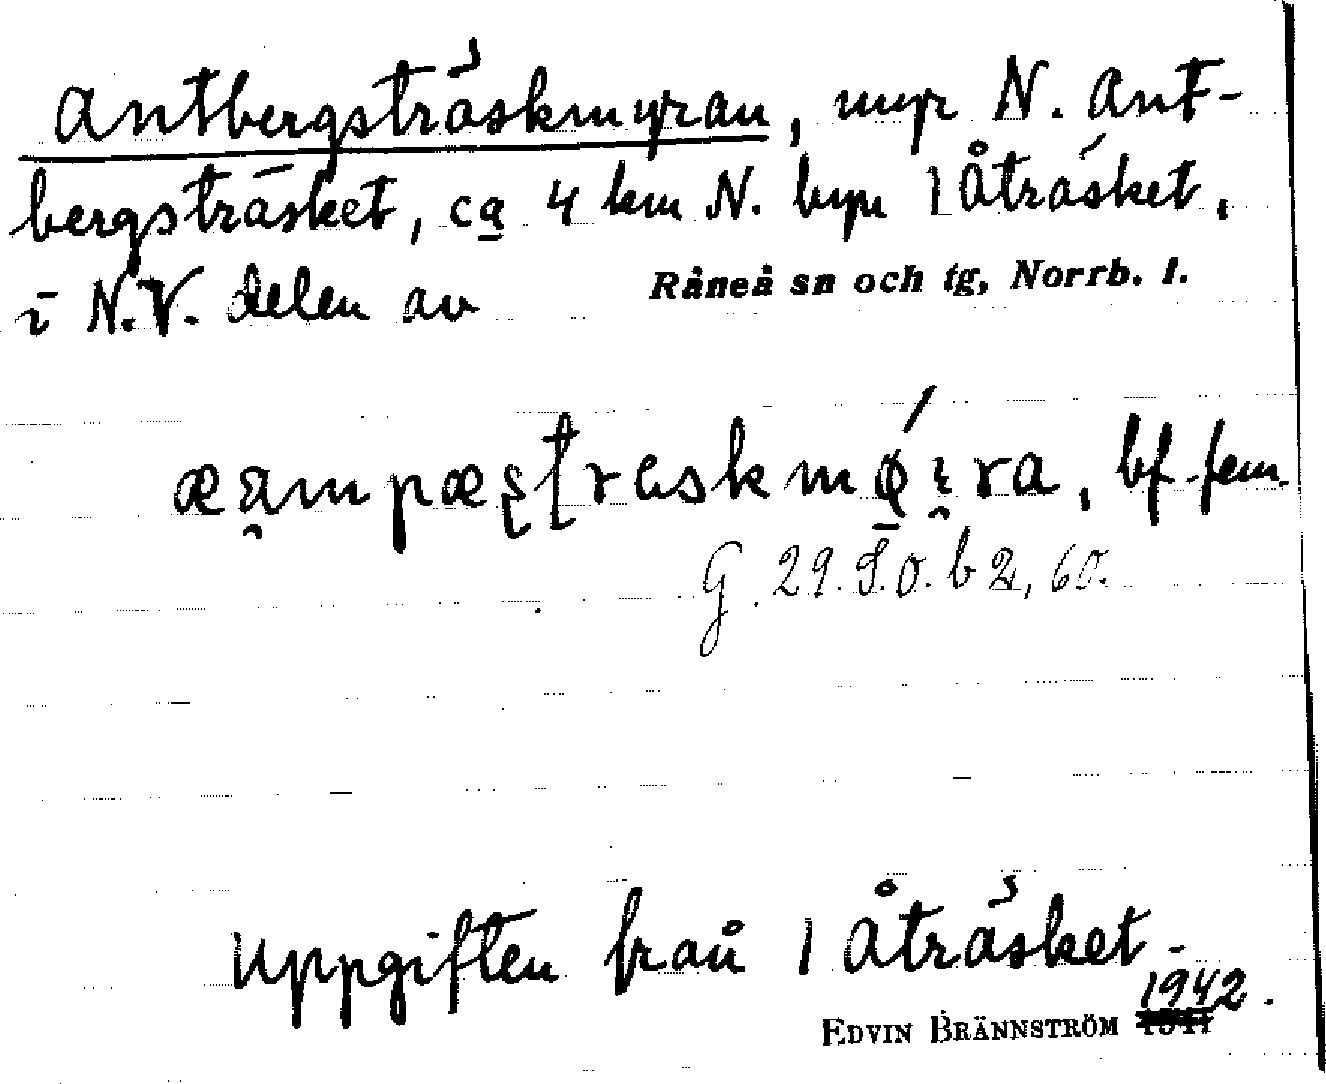 Antbergsträskmyran, myr N. Ant-
bergsträsket, ca 4 km N. byn 1 Åträsket,
i N.V. delen av Råneå sn och tg, Norrb. l.
bf. fem.
G. 29. S.O. b 2, 60.
Uppgiften från 1 Åträsket.
1942.
EDVIN BRÄNNSTRÖM